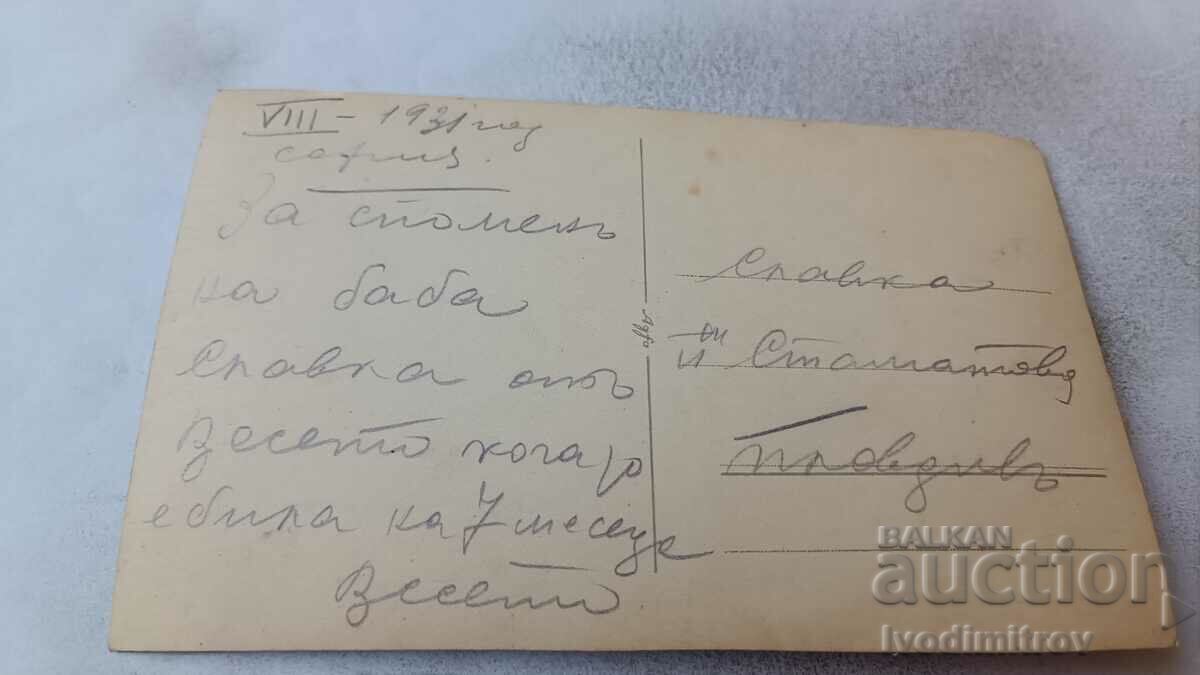 VIII - 1931 год
София.
За споменъ
на баба
Славка отъ
Весето когато
е била на 7 месеце
Весето
Agfa
Славка
Стаматова
Пловдивъ
BALKAN
auction
lyodimitrov